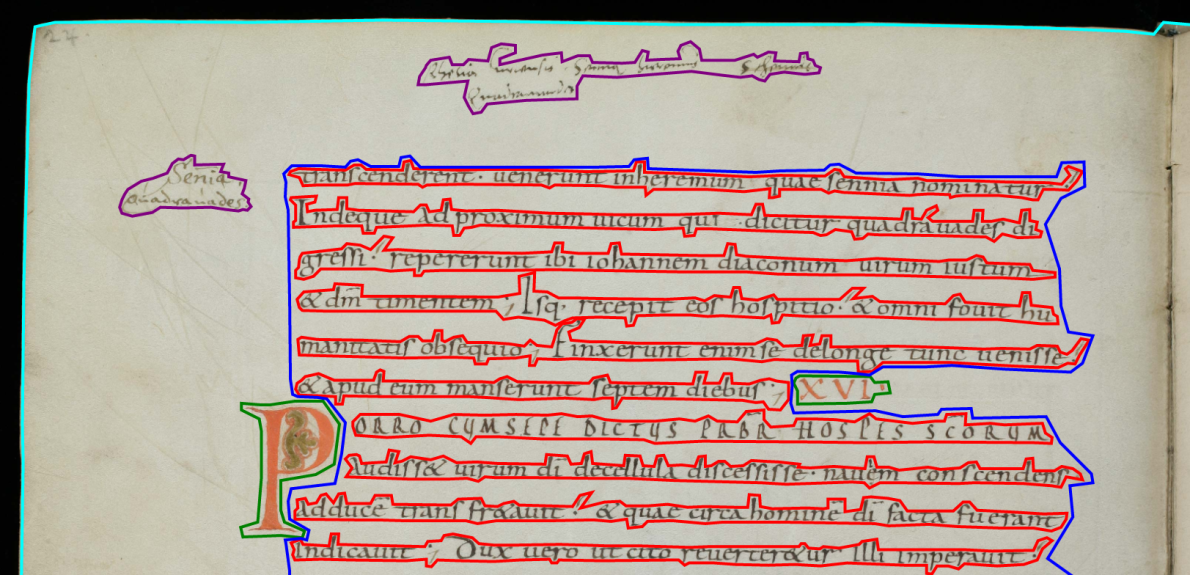 24
Senia
Quadrauades
transcenderent · uenerunt inheremum quae sennia nominatur
Indeque ad proximum uicum qui dicitur quadráuades di
gressi · repererunt ibi iohannem diaconum uirum iustum
& dm̄ timentem ; Isq; recepit eos hospitio · & omni fouit hu
manitatis obsequio ; Finxerunt enim se delonge tunc uenisse
& apud eum manserunt septem diebus ; XVI ·
PORRO CUM SEPE DICTUS PRBR HOSPES SCORUM
Audiss& uirum di decellula discessisse · nauem conscendens
Adducē transfr&auit · & quae circa hominē di facta fuerant
Indicauit ; Dux uero ut cito reuerter&ur illi imperauit ·